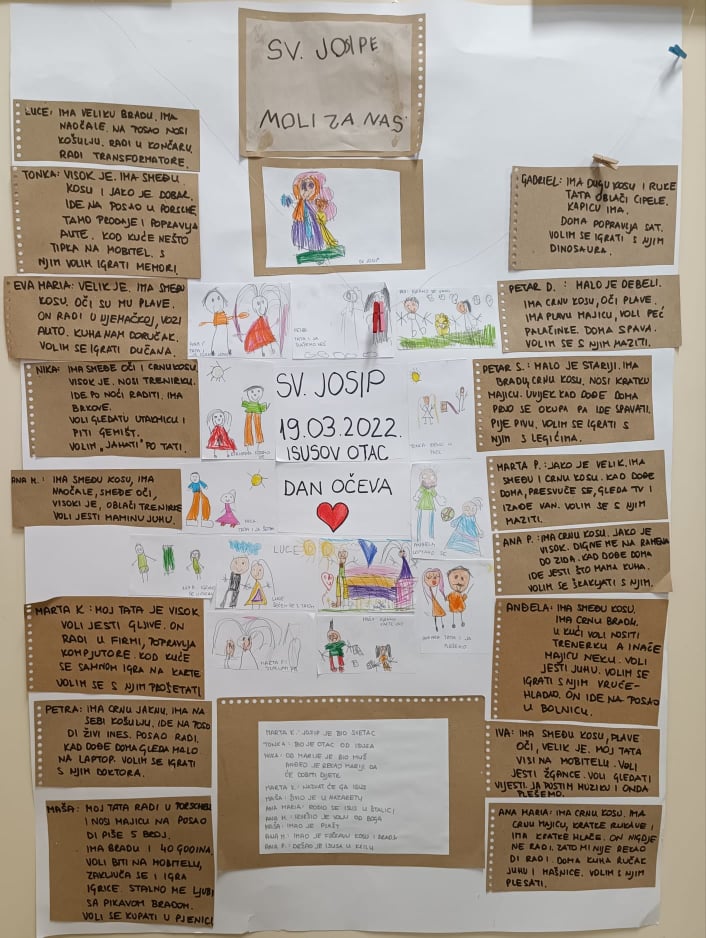 SV. JOSIPE
MOLI ZA NAS
LUCE: IMA VELIKU BRADU. IMA
NAOČALE. NA POSAO NOSI
KOŠULJU. RADI U KONČARU.
RADI TRANSFORMATORE.
TONKA: VISOK JE. IMA SMEĐU
KOSU I JAKO JE DOBAR.
IDE NA POSAO U PORSCHE
TAMO PRODAJE I POPRAVLJA
AUTE. KOD KUĆE NEŠTO
TIPKA NA MOBITEL. S
NJIM VOLIM IGRATI MEMORI.
EVA MARIA: VELIK JE. IMA SMEĐU
KOSU. OČI SU MU PLAVE.
ON RADI U NJEMAČKOJ, VOZI
AUTO. KUHA NAM DORUČAK.
VOLIM SE IGRATI DUĆANA.
NIKA: IMA SMEĐE OČI I CRNU KOSU
VISOK JE. NOSI TRENIRKU.
IDE PO NOĆI RADITI. IMA
BRKOVE.
VOLI GLEDATI UTAKMICU I
PITI GEMIŠT.
VOLIM "JAHATI" PO TATI.
ANA M.: IMA SMEĐU KOSU, IMA
NAOČALE, SMEĐE OČI,
VISOKI JE, OBLAČI TRENIRKE
VOLI JESTI MAMINU JUHU.
MARTA K: MOJ TATA JE VISOK
VOLI JESTI GLJIVE. ON
RADI U FIRMI, POPRAVLJA
KOMPJUTORE. KOD KUĆE
SE SAMNOM IGRA NA KARTE
VOLIM SE S NJIM PROŠETATI
PETRA: IMA CRNU JAKNU, IMA NA
SEBI KOŠULJU. IDE NA POSO
DI ŽIVI INES. POSAO RADI.
KAD DOĐE DOMA GLEDA MALO
NA LAPTOP. VOLIM SE IGRATI
S NJIM DOKTORA.
MAŠA: MOJ TATA RADI U PORSCHEU
I NOSI MAJICU NA POSAO
DI PIŠE 5 BROJ.
IMA BRADU I 40 GODINA.
VOLI BITI NA MOBITELU,
ZAKLJUČA SE I IGRA
IGRICE. STALNO ME LJUBI
SA PIKAVOM BRADOM.
VOLI SE KUPATI U PJENICI
SV. JOSIP
19.03.2022.
ISUSOV OTAC
DAN OČEVA
LUCE
MARTA K: JOSIP JE BIO SVETAC
TONKA: BIO JE OTAC OD ISUSA
NIKA: OD MARIJE JE BIO MUŽ
ANĐEO JE REKAO MARIJI DA
ĆE DOBITI DIJETE
MARTA K: NAZVAT ĆE GA ISUS
MAŠA: ŽIVIO JE U NAZARETU
ANA MARIA: RODIO SE ISUS U ŠTALICI
ANA M: IZVRŠIO JE VOLJU OD BOGA
MAŠA: IMAO JE PLAŠT
ANA M: IMAO JE KOVRČAVU KOSU I BRADU
ANA P.: DRŽAO JE ISUSA U KRILU
GABRIEL: IMA DUGU KOSU I RUKE
TATA OBLAČI CIPELE.
KAPICU IMA.
DOMA POPRAVLJA SAT.
VOLIM SE IGRATI S NJIM
DINOSAURA.
PETAR D.: MALO JE DEBELI.
IMA CRNU KOSU, OČI PLAVE.
IMA PLAVU MAJICU, VOLI PEĆ
PALAČINKE. DOMA SPAVA.
VOLIM SE S NJIM MAZITI.
PETAR S.: MALO JE STARIJI. IMA
BRADU, CRNU KOSU. NOSI KRATKU
MAJICU. UVIJEK KAD DOĐE DOMA
PRVO SE OKUPA PA IDE SPAVATI.
PIJE PIVU. VOLIM SE IGRATI S
NJIM S LEGIĆIMA.
MARTA P: JAKO JE VELIK. IMA
SMEĐU I CRNU KOSU. KAD DOĐE
DOMA, PRESVUČE SE, GLEDA TV I
IZAĐE VAN. VOLIM SE S NJIM
MAZITI.
ANA P: IMA CRNU KOSU. JAKO JE
VISOK. DIGNE ME NA RAMENA
DO ZIDA. KAD DOĐE DOMA
IDE JESTI ŠTO MAMA KUHA.
VOLIM SE ŠKAKLJATI S NJIM.
ANĐELA: IMA SMEĐU KOSU.
IMA CRNU BRADU.
U KUĆI VOLI NOSITI
TRENERKU A INAČE
MAJICU NEKU. VOLI
JESTI JUHU. VOLIM SE
IGRATI S NJIM VRUĆE-
HLADNO. ON IDE NA POSAO
U BOLNICU.
IVA: IMA SMEĐU KOSU, PLAVE
OČI, VELIK JE. MOJ TATA
VISI NA MOBITELU. VOLI
JESTI ŽGANCE. VOLI GLEDATI
VIJESTI. JA POSTIM MUZIKU I ONDA
PLEŠEMO.
ANA MARIA: IMA CRNU KOSU. IMA
CRNU MAJICU, KRATKE RUKAVE I
IMA KRATKE HLAČE. ON NIGDJE
NE RADI. ZATO MI NIJE REKAO
DI RADI. DOMA KUHA RUČAK
JUHU I MAŠNICE. VOLIM S NJIM
PLESATI.